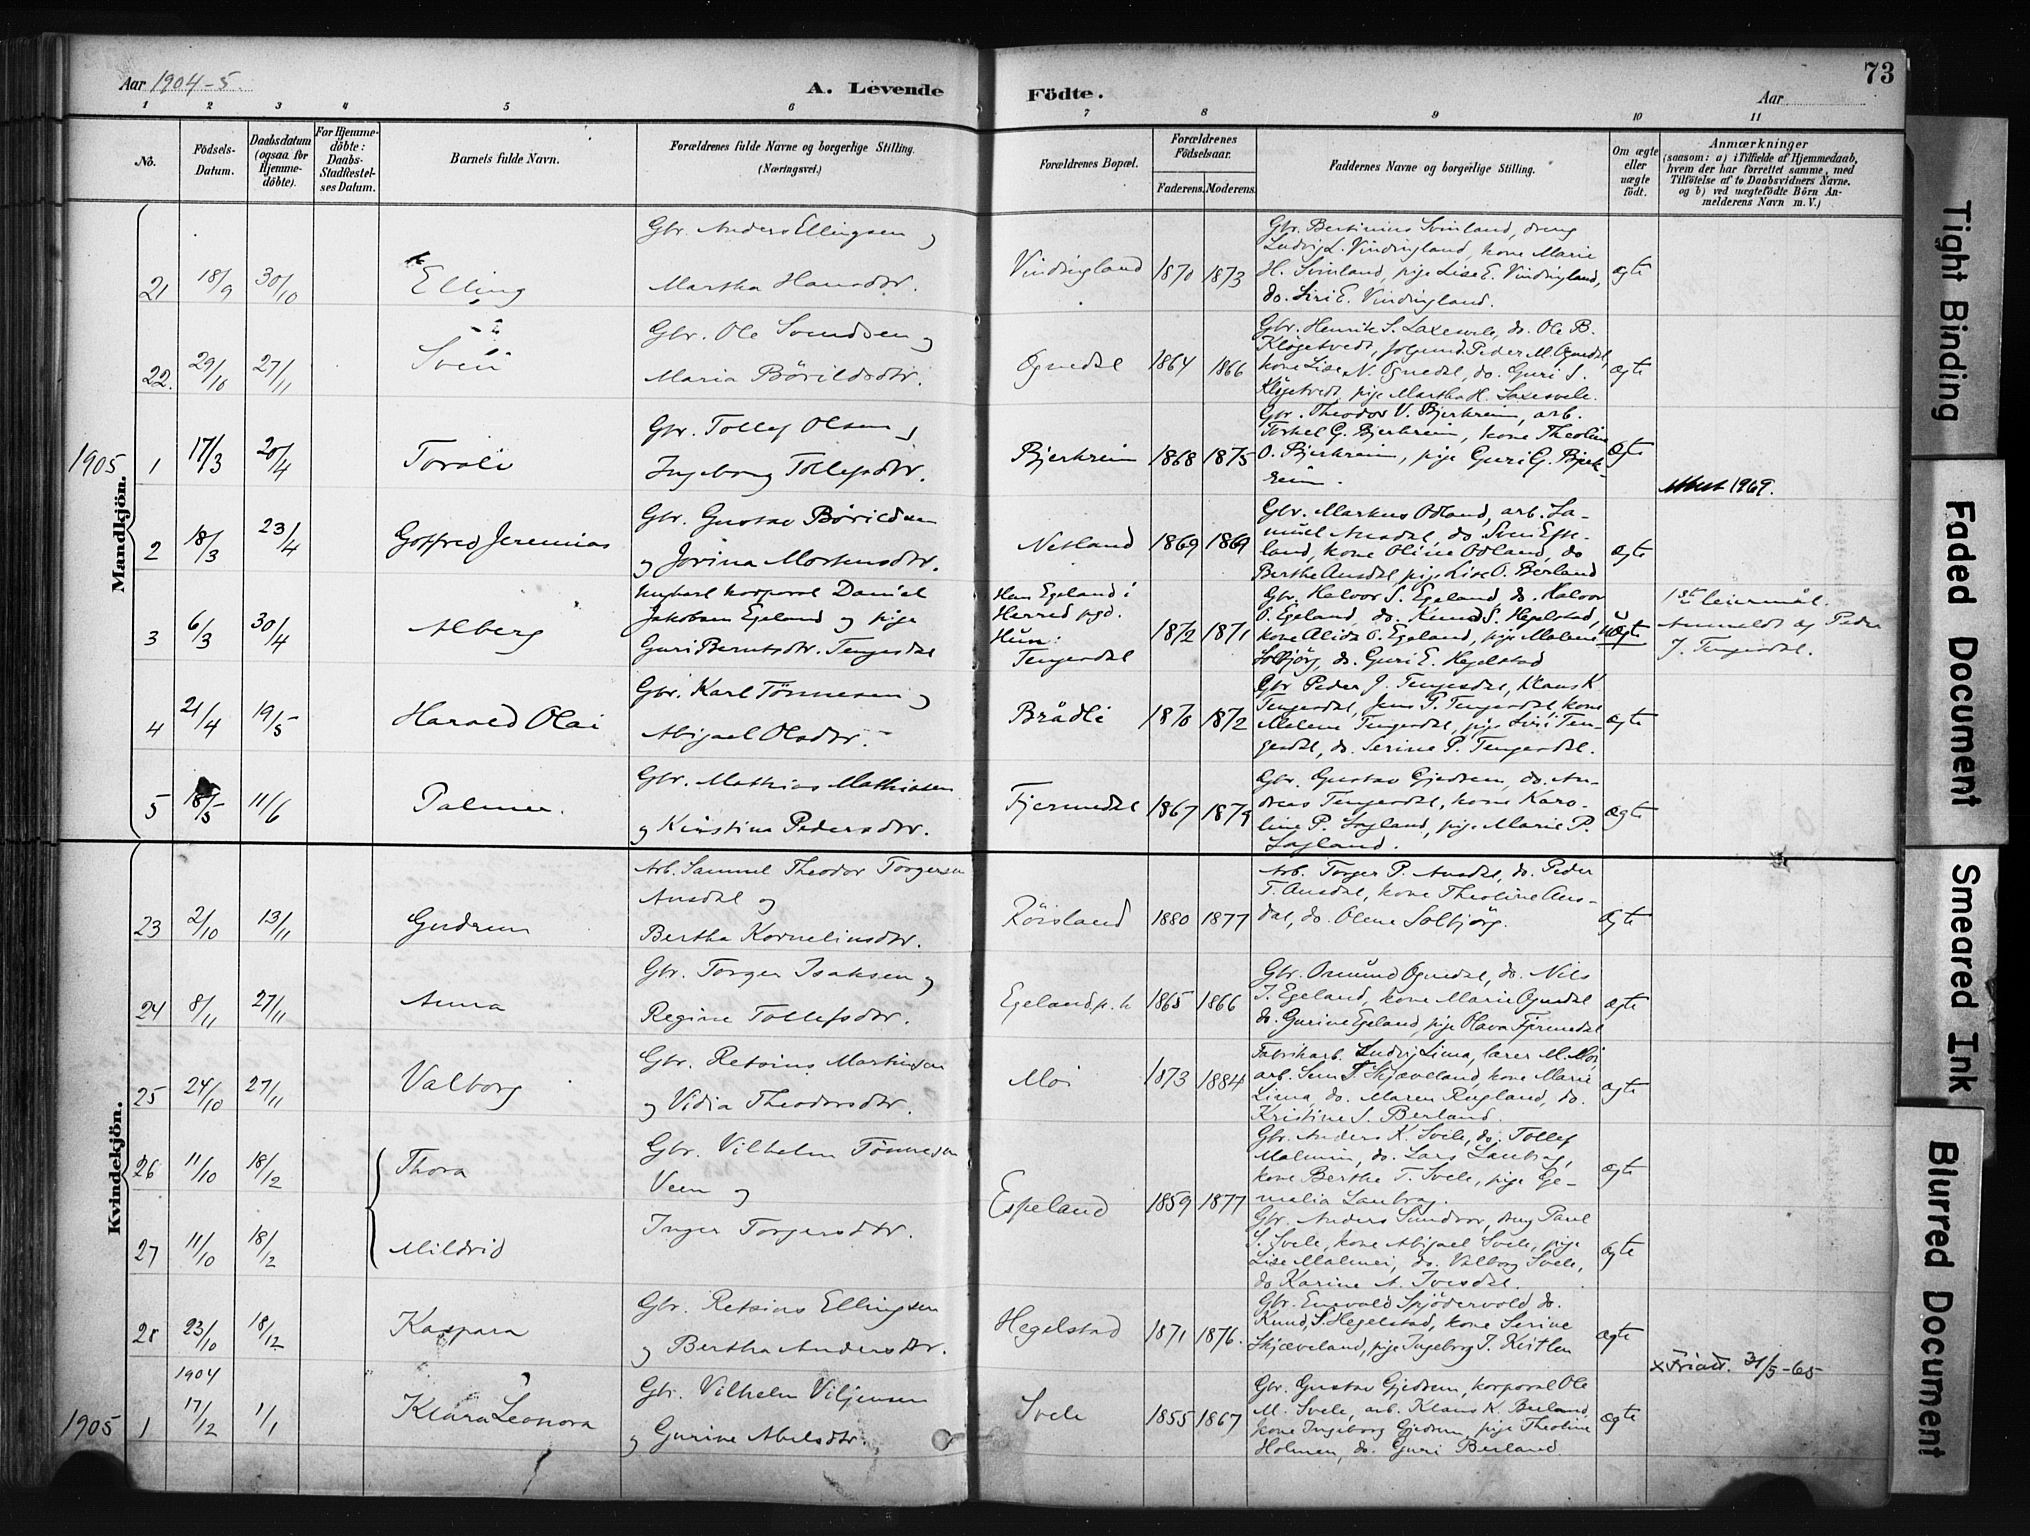 73
Aar 1904-5. A. Levende Födte. Aar
1 2 3 4 5 6 7 8 9 10 11
No.
Födsels-Datum.
Daabsdatum (ogsaa for Hjemmedöbte).
For Hjemmedöbte: Daabs-Stadfæstelses Datum.
Barnets fulde Navn.
Forældrenes fulde Navne og borgerlige Stilling. (Næringsvei.)
Forældrenes Bopæl.
Forældrenes Födselsaar.
Faderens. Moderens.
Faddernes Navne og borgerlige Stilling.
Om ægte eller uægte födt.
Anmærkninger
(saasom: a) i Tilfælde af Hjemmedaab, hvem der har forrettet samme, med Tilföielse af to Daabsvidners Navne, og b) ved uægtefödte Börn Anmelderens Navn m. V.)
Mandkjön.
21 18/9 30/10 Elling
Gbr. Anders Ellingsen og
Martha Hansdtr.
Vindingland 1870 1873
Gbr. Bertinius Svinland, dreng
Ludvig L. Vindingland, kone Marie
H. Svinland, pige Lise E. Vindingland,
do. Siri E. Vindingland.
ægte
22. 29/10 27/11 Sven
Gbr. Ole Svendsen og
Maria Börildsdtr.
Ognedal 1864 1866
Gbr. Henrik S. Laxesvele, do. Ole B.
Klögetvedt, Peder M. Ognedal,
kone Lise N. Ognedal, do. Guri S.
Klögetvedt, pige Martha H. Laxesvele.
ægte
1905 1 17/3 20/4 Toralv
Gbr. Tollef Olsen og
Ingeborg Tollefsdtr.
Bjerkreim 1868 1875
Gbr. Theodor V. Bjerkreim, arb.
Torkel G. Bjerkreim, kone Theoline
O. Bjerkreim, pige Guri G. Bjerk-
reim.
ægte
1969.
2 18/3 23/4 Gotfred Jeremias
Gbr. Gustav Börildsen
og Jorina Mortensdtr.
Netland 1869 1869
Gbr. Markus Odland, arb. Sa-
muel Ausdal, do Sven Efte-
land, kone Oline Odland, do
Berthe Ausdal, pige Lise O. Berland
ægte
3 6/3 30/4 Alberg
Ungkarl korporal Daniel
Jakobsen Egeland og pige
Guri Berntsdtr. Tengesdal
Han Egeland i
Herred pgd.
Hun:
Tengesdal
1872 1871
Gbr. Halvor S. Egeland, do. Halvor
O. Egeland, do. Knud S. Hegelstad,
kone Alida O. Egeland, pige Malene
Solbjörg, do. Guri E. Hegelstad
uægte
1ste leiermål.
Anmeldt af Peder
J. Tengesdal.
4 21/4 19/5 Harald Olai
Gbr. Karl Tönnesen og
Abigael Olsdtr.
Brådli 1870 1872
Gbr Peder J. Tengesdal, Klaus K.
Tengesdal, Jens P. Tengesdal, kone
Malene Tengesdal, pige Siri Ten-
gesdal, do. Serine P. Tengesdal.
ægte
5 18/5 11/6 Palmer.
Gbr. Mathias Mathiasen
og Kristina Pedersdtr.
Fjermedal 1867 1879
Gbr. Gustav Gjedrem, do. An-
dreas Tengesdal, kone Karo-
line P. Sagland, pige Marie P.
Sagland.
ægte
Kvindekjön.
23 2/10 13/11 Gudrun
Arb. Samuel Theodor Torgersen
Ausdal og
Bertha Korneliusdtr.
Röisland 1880 1877
Arb. Torger P. Ausdal, do. Peder
T. Ausdal, kone Theoline Aus-
dal, do. Olene Solbjörg.
ægte
24 8/11 27/11 Anna
Gbr. Torger Isaksen og
Regine Tollefsdtr.
Egeland, p. h 1865 1866
Gbr. Osmund Ognedal, do. Nils
T. Egeland, kone Marie Ognedal
do. Gurine Egeland, pige Olava Fjermedal
ægte
25 24/10 27/11 Valborg
Gbr. Retsius Martinsen
og Vidia Theodorsdtr.
Moi 1873 1884
Fabrikarb. Ludvig Lima, lærer M. Moi,
arb. Sem T. Skjæveland, kone Marie
Lima, do. Maren Rugland, do.
Kristine S. Berland.
ægte
26 11/10 18/12 Thora
Gbr. Vilhelm Tönnesen
Veen og
Espeland 1859 1877
Gbr. Anders K. Svele, do. Tollef
Malmin, do. Lars
kone Berthe T. Svele, pige
ægte
27 11/10 18/12 Mildrid
Inger Torgersdtr.
Gbr. Anders Sundvor, dreng Paul
S. Svele, kone Abigael Svele, pige
Lise Malmei, do. Valborg Svele,
do Karine A. Ivesdal.
ægte
28 23/10 18/12 Kaspara
Gbr. Retsius Ellingsen
og Bertha Andersdtr.
Hegelstad 1871 1876.
Gbr. Enevald Spjödervold do.
Knud S. Hegelstad, kone Serine
Skjæveland, pige Ingeborg T. Kvitlen
ægte
x Friatt. 31/5-65
1904
1905 1 17/12 1/1 Klara Leonora
Gbr. Vilhelm Viljensen
og Gurine Abelsdtr.
Svele 1855 1867
Gbr. Gustav Gjedrem, korporal Ole
M. Svele, arb. Klaus K. Berland,
kone Ingeborg Gjedrem, pige Theoline
Holmen, do. Guri Berland.
ægte
Tight Binding
Faded Document
Smeared Ink
Blurred Document